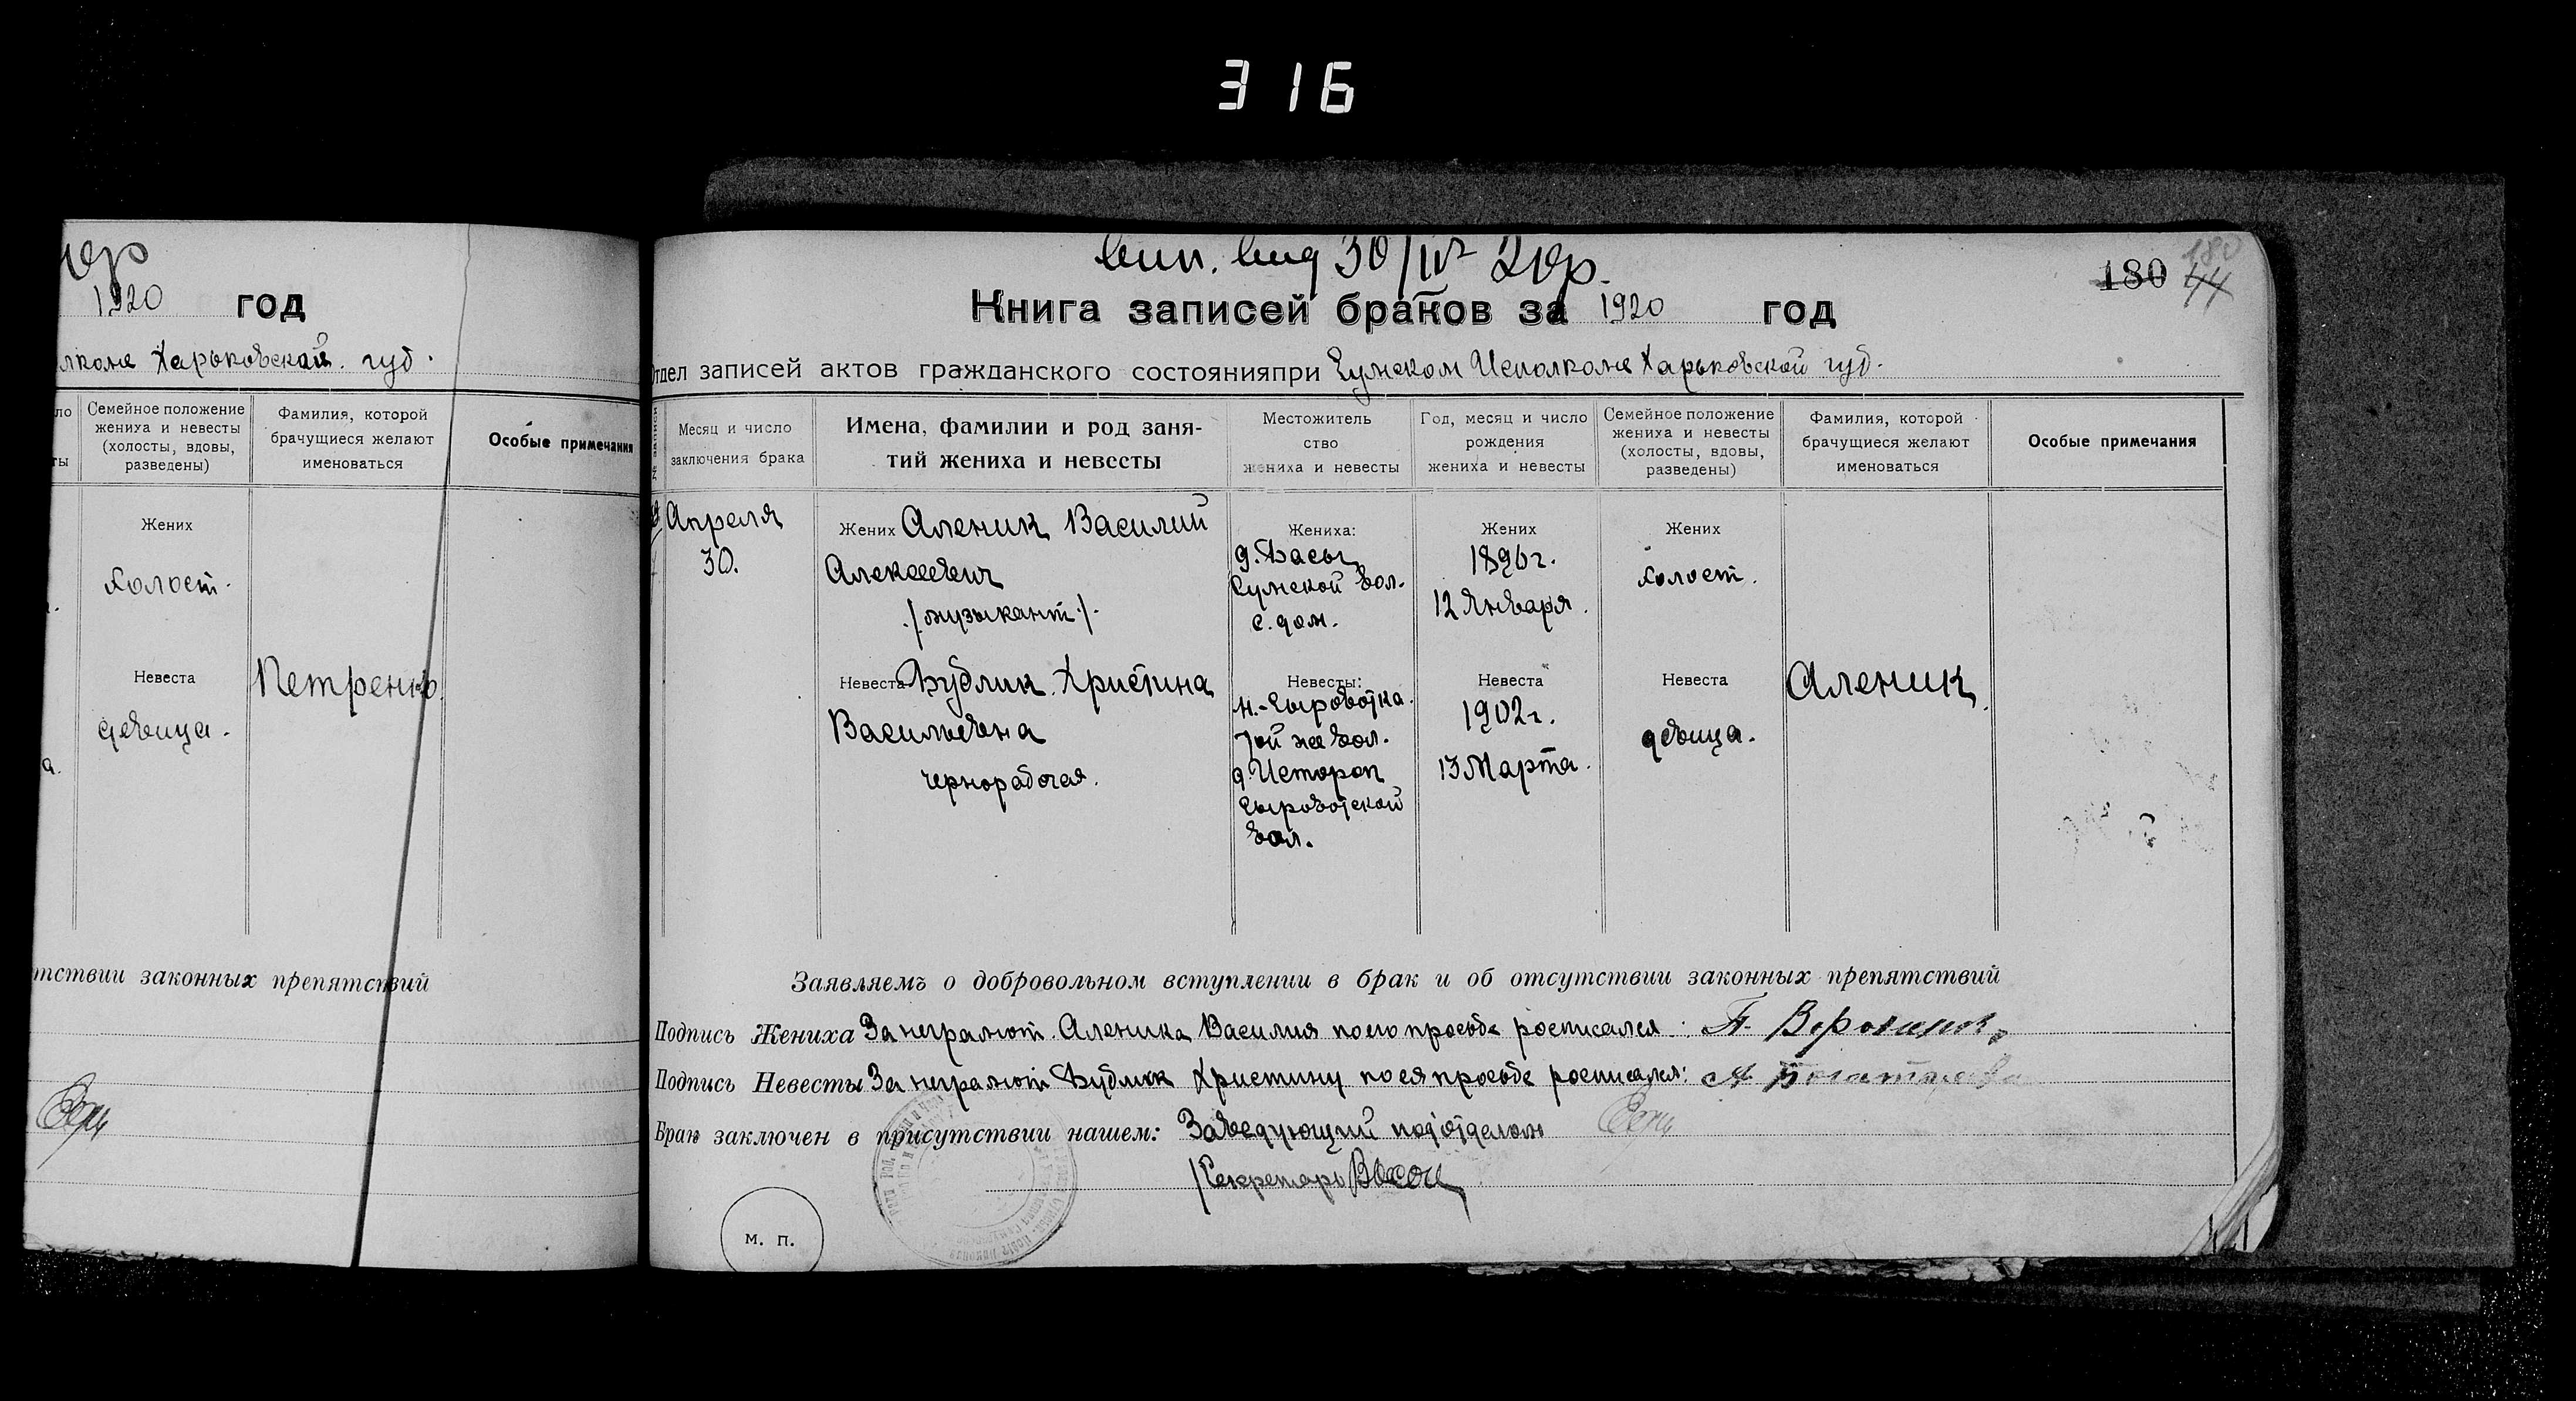 316
1920 год
Харьковской губ.
Семейное положение жениха и невесты (холосты, вдовы, разведены)
Фамилия, которой брачущиеся желают именоваться
Особые примечания
Жених
Холост.
Невеста
девица.
Петренко.
законных препятствий
180
180 44
30/IV 20р.
Книга записей браков за 1920 год
Отдел записей актов гражданского состоянияпри Сумском Исполкоме Харьковской губ.
№ записи
Месяц и число заключения брака
Имена, фамилии и род занятий жениха и невесты
Местожительство жениха и невесты
Год, месяц и число рождения жениха и невесты
Семейное положение жениха и невесты (холосты, вдовы, разведены)
Фамилия, которой брачущиеся желают именоваться
Особые примечания
Апреля
30.
Жених Аленик Василий
Алексеевич
/музыкант/.
Жениха:
д. Басы
Сумской вол.
с. дом.
Жених
1896г.
12 Января.
Жених
Холост.
Невеста Бублик Христина
Васильевна
чернорабочая.
Невесты:
Н.-Сыроватка
той же вол.
д. Истороп
Сыроватской
вол.
Невеста
1902г.
13 Марта.
Невеста
девица.
Аленик.
Заявляемъ о добровольном вступлении в брак и об отсутствии законных препятствий
Подпись Жениха За неграмот. Аленика Василия по его просьбе росписался:
Подпись Невесты За неграмот Бублик Христину по ея просьбе росписался:
Брак заключен в присутствии нашем: Заведующий подотделом
Секретарь
м. п.